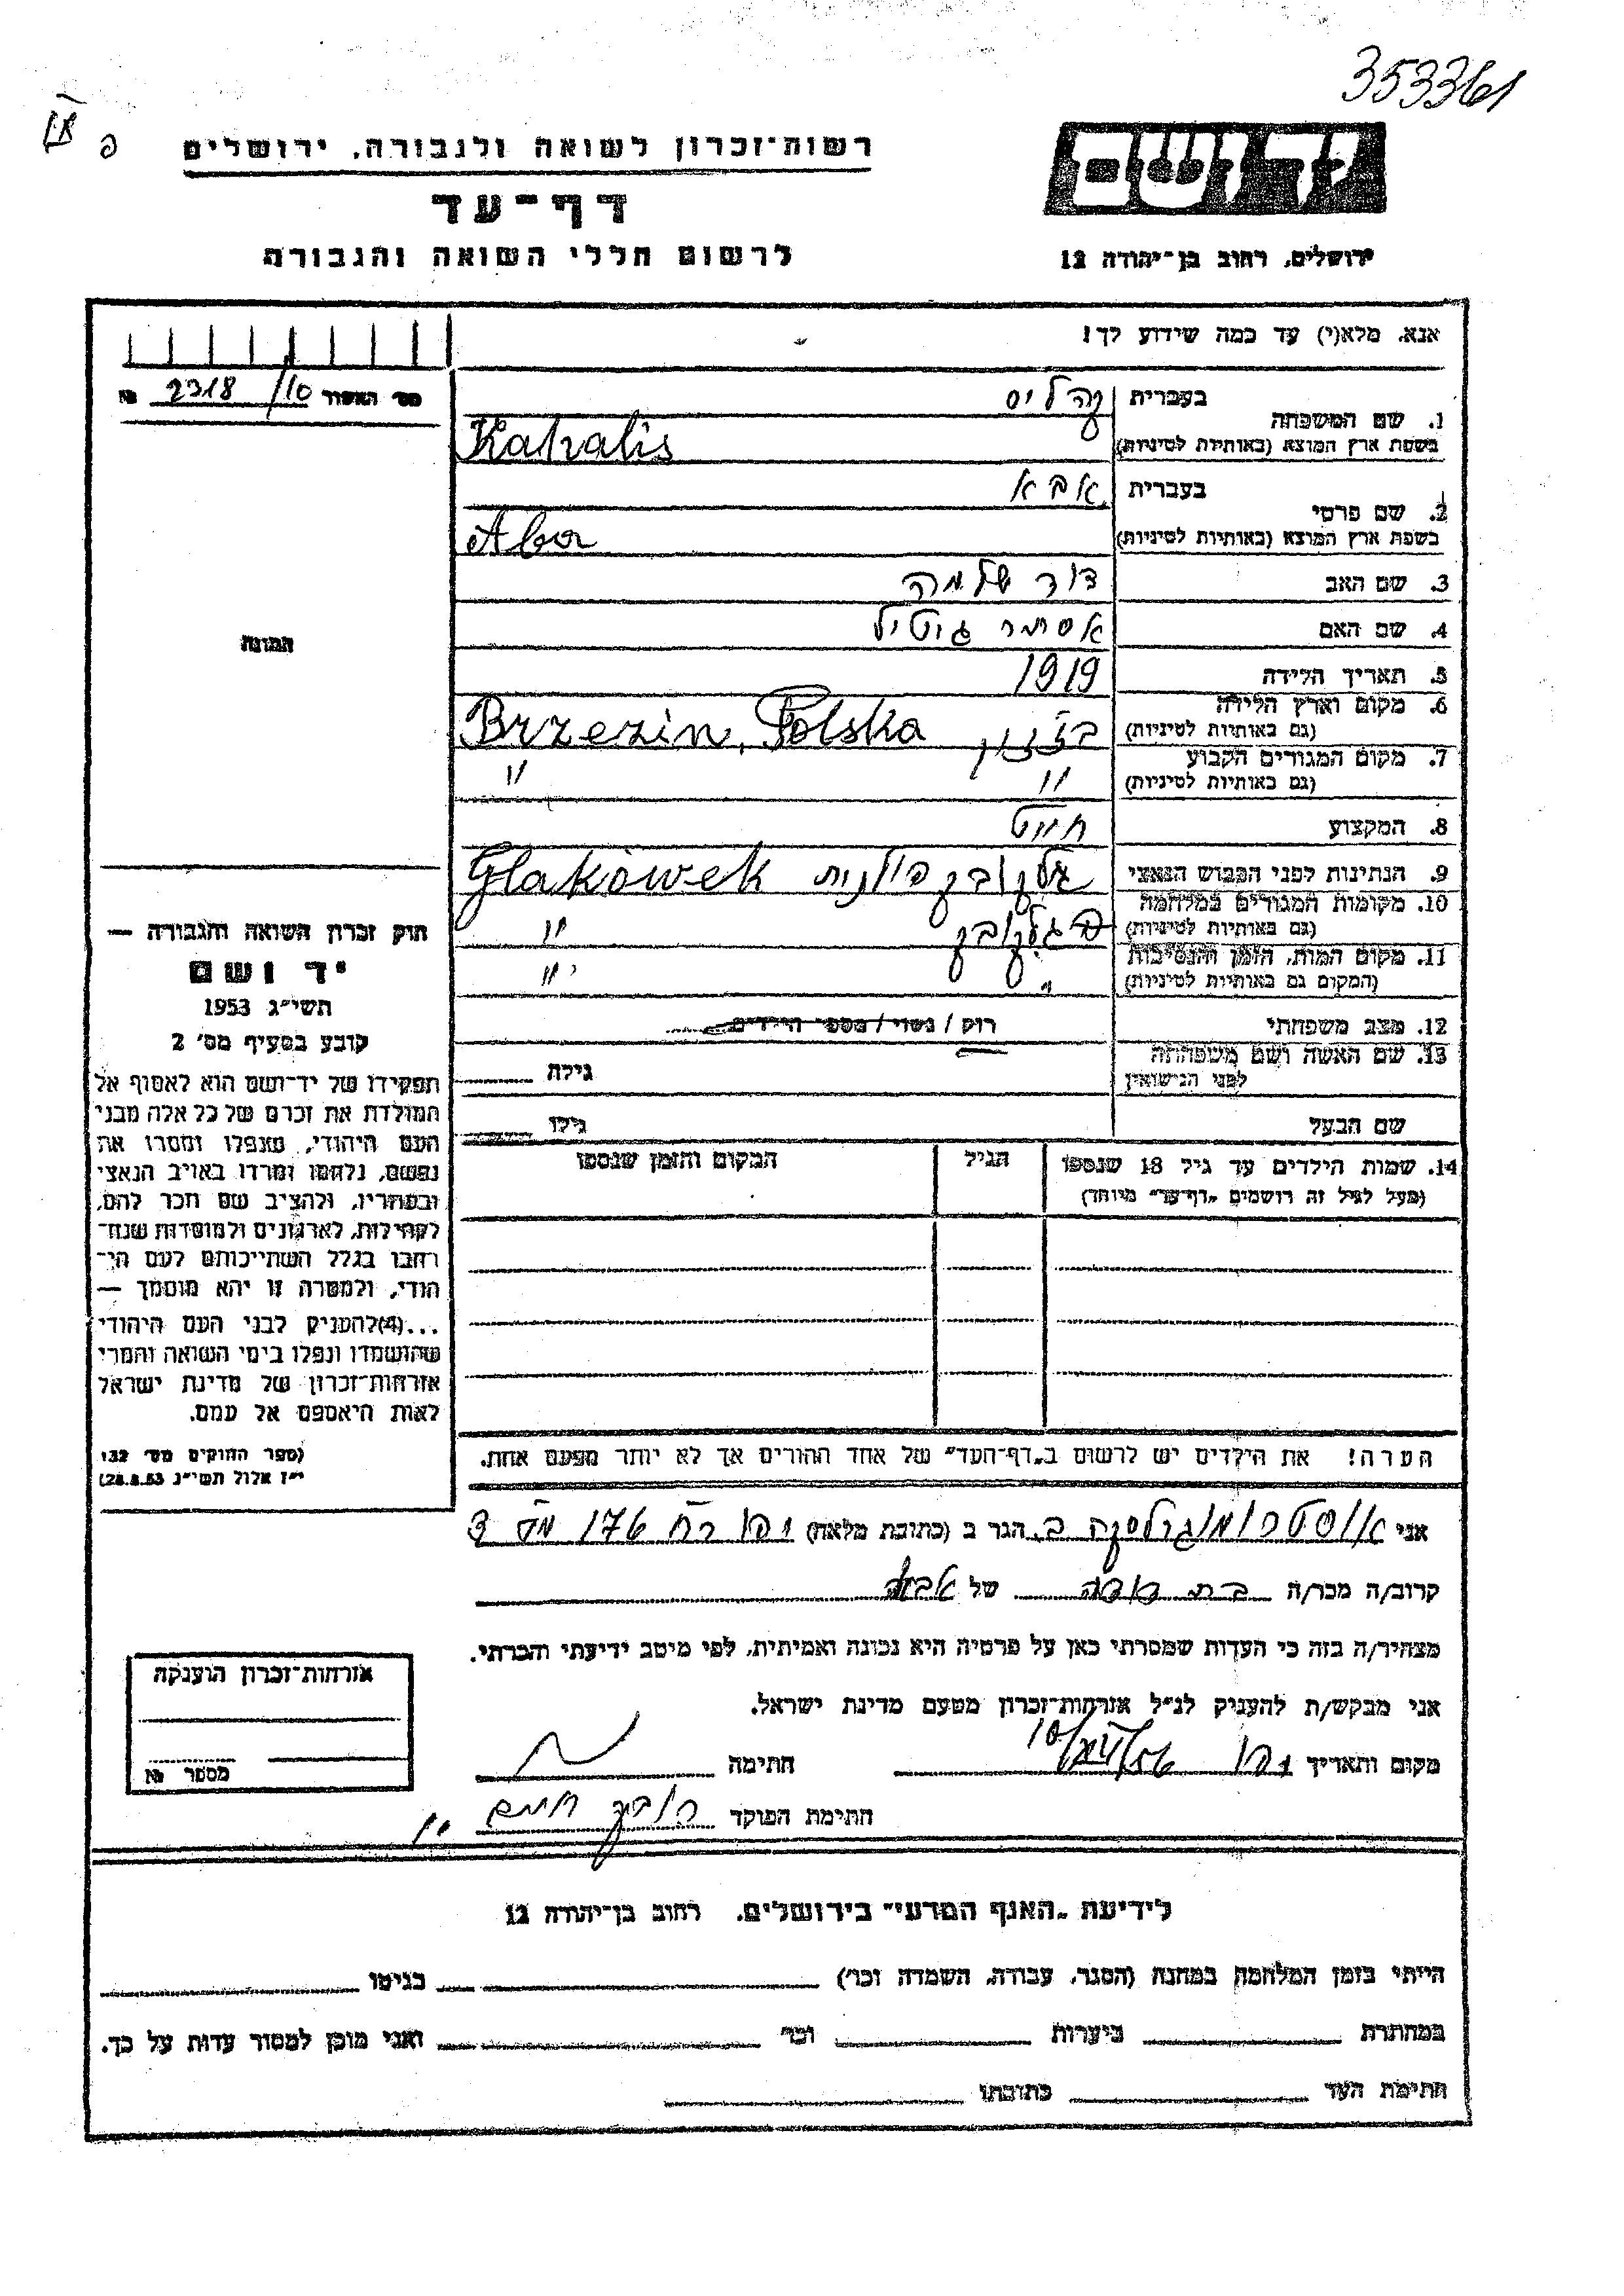 353361
רשות־זכרון לשואה ולגבורה, ירושלים
יד ושם
דף־עד
לרשום חללי השואה והגבורה
ירושלים, רחוב בן־יהודה 12
אנא, מלא(י) עד כמה שידוע לך!
מס׳ האשור 10/ 2318 №
1. שם המשפחה
בעברית קהליס
בשפת ארץ המוצא (באותיות לטיניות) Kahalis
2. שם פרטי
בעברית אבא
בשפת ארץ המוצא (באותיות לטיניות) Aba
3. שם האב דוד שלמה
4. שם האם אסתר גיטיל
5. תאריך הלידה 1919
6. מקום וארץ הלידה
(גם באותיות לטיניות) Brzezin, Polska
7. מקום המגורים הקבוע
(גם באותיות לטיניות) " "
8. המקצוע חייט
9. הנתינות לפני הכבוש הנאצי פולנית Glakowek
10. מקומות המגורים במלחמה
(גם באותיות לטיניות) "
11. מקום המות, הזמן והנסיבות
(המקום גם באותיות לטיניות) " "
12. מצב משפחתי רוק / נשוי / מספר הילדים
13. שם האשה ושם משפחתה
לפני הנישואין גילה
שם הבעל גילו
14. שמות הילדים עד גיל 18 שנספו הגיל המקום והזמן שנספו
(מעל לגיל זה רושמים „דף־עד״ מיוחד)
התמונה
חוק זכרון השואה והגבורה —
יד ושם
תשי״ג 1953
קובע בסעיף מס׳ 2
תפקידו של יד־ושם הוא לאסוף אל
המולדת את זכרם של כל אלה מבני
העם היהודי, שנפלו ומסרו את
נפשם, נלחמו ומרדו באויב הנאצי
ובעוזריו, ולהציב שם וזכר להם,
לקהילות, לארגונים ולמוסדות שנח־
רבו בגלל השתייכותם לעם הי־
הודי, ולמטרה זו יהא מוסמך —
...(4)להעניק לבני העם היהודי
שהושמדו ונפלו בימי השואה והמרי
אזרחות־זכרון של מדינת ישראל
לאות היאספם אל עמם.
(ספר החוקים מס׳ 132
י״ז אלול תשי״ג 28.8.53)
הערה! את הילדים יש לרשום ב„דף־העד״ של אחד ההורים אך לא יותר מפעם אחת.
אני הגר ב (כתובת מלאה) יפו רח 176 מס 3
קרוב/ה מכר/ה בת דודה של אבא
מצהיר/ה בזה כי העדות שמסרתי כאן על פרטיה היא נכונה ואמיתית, לפי מיטב ידיעתי והכרתי.
אני מבקש/ת להעניק לנ״ל אזרחות־זכרון מטעם מדינת ישראל.
מקום ותאריך יפו חתימה
חתימת הפוקד
אזרחות־זכרון הוענקה
מספר №
לידיעת „האגף המדעי״ בירושלים. רחוב בן־יהודה 12
הייתי בזמן המלחמה במחנה (הסגר, עבודה, השמדה וכו׳) בגיטו
במחתרת ביערות וכו׳ ואני מוכן למסור עדות על כך.
חתימת העד כתובתו